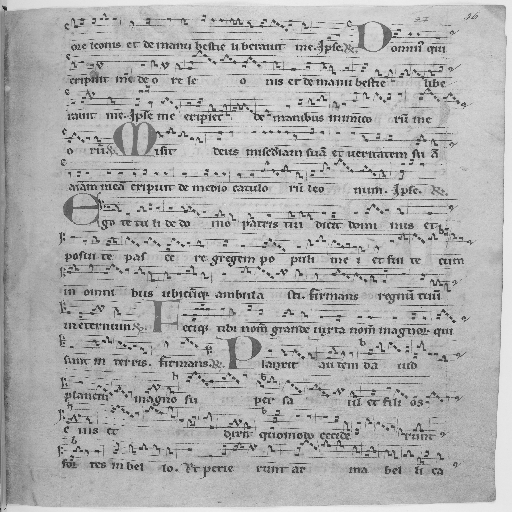 22 26
ore leonis et de manu bestie liberavit me. Ipse. R. Domin' qui
eripuit me de o re le o nis et de manu bestie libe
ravit me. Ipse me eripiet de manibus inimico rū me
o rū. V. Misit deus misediam suā et veritatem su ā
aīam meā eripuit de medio catulo rū leo num. Ipse. R.
Ego te tu li de do mo patris tui dicit domi nus et
posui te pas ce re gregem po puli me i et fui te cum
in omni bus ubicūq; ambula sti. firmans regnū tuū
in eternum. R. Feciq; tibi nom̄ grande iuxta nom̄ magnor qui
sunt in terris. firmans. R. Planxit autem da vid
planctu magno su per sa ul et fili ōs
e ius et dixit quomodo cecide runt
for tes in bel lo. Et perie runt ar ma bel li ca